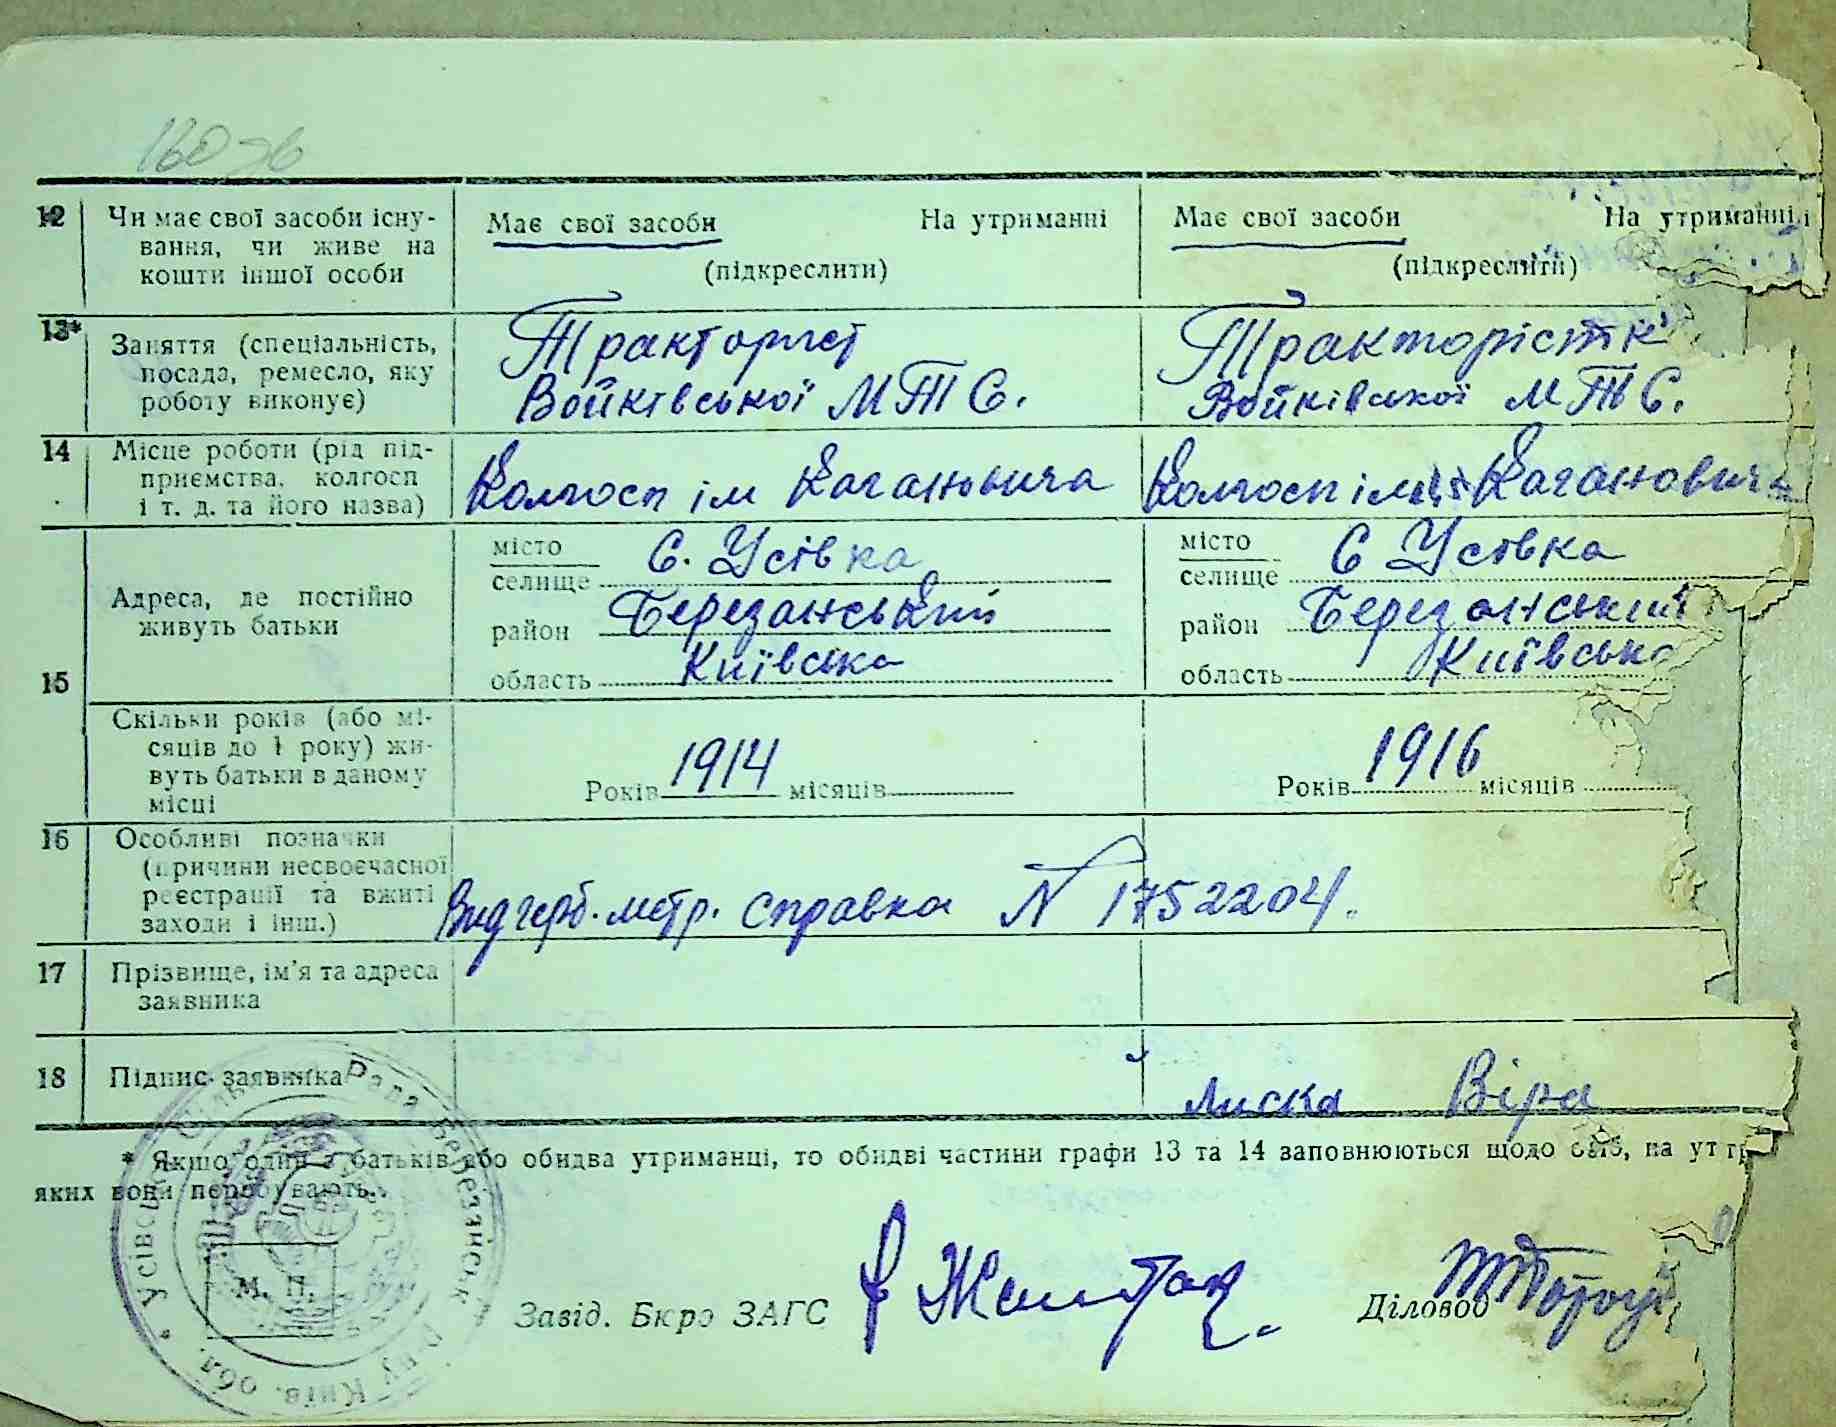 160 зв
12 Чи має свої засоби існу-
вання, чи живе на
кошти іншої особи
Має свої засоби На утриманні
(підкреслити)
Має свої засоби На утриманні
(підкреслити)
13* Заняття (спеціальність,
посада, ремесло, яку
роботу виконує)
Тракторист
Войківської МТС.
Тракторістк
Войківської МТС.
14 Місце роботи (рід під-
приємства, колгосп
і т. д. та його назва)
Колгосп ім Кагановича
Колгосп ім Каганович
15 Адреса, де постійно
живуть батьки
місто
селище С. Усівка
район Березанський
область Київська
місто
селище С Усівка
район Березанський
область Київська
Скільки років (або мі-
сяців до 1 року) жи-
вуть батьки в даному
місці
Років 1914 місяців
Років 1916 місяців
16 Особливі позначки
(причини несвоєчасної
реєстрації та вжиті
заходи і інш.)
Вид герб. метр. справка N 1752204.
17 Прізвище, ім'я та адреса
заявника
18 Підпис заявника
Лиска Віра
* Якщо один з батьків або обидва утриманці, то обидві частини графи 13 та 14 заповнюються щодо осіб, на ут
яких вони перебувають.
М. П.
Завід. Бюро ЗАГС
Діловод
Усівська Сільська Рада Березанськ. р-ну Київ. обл.